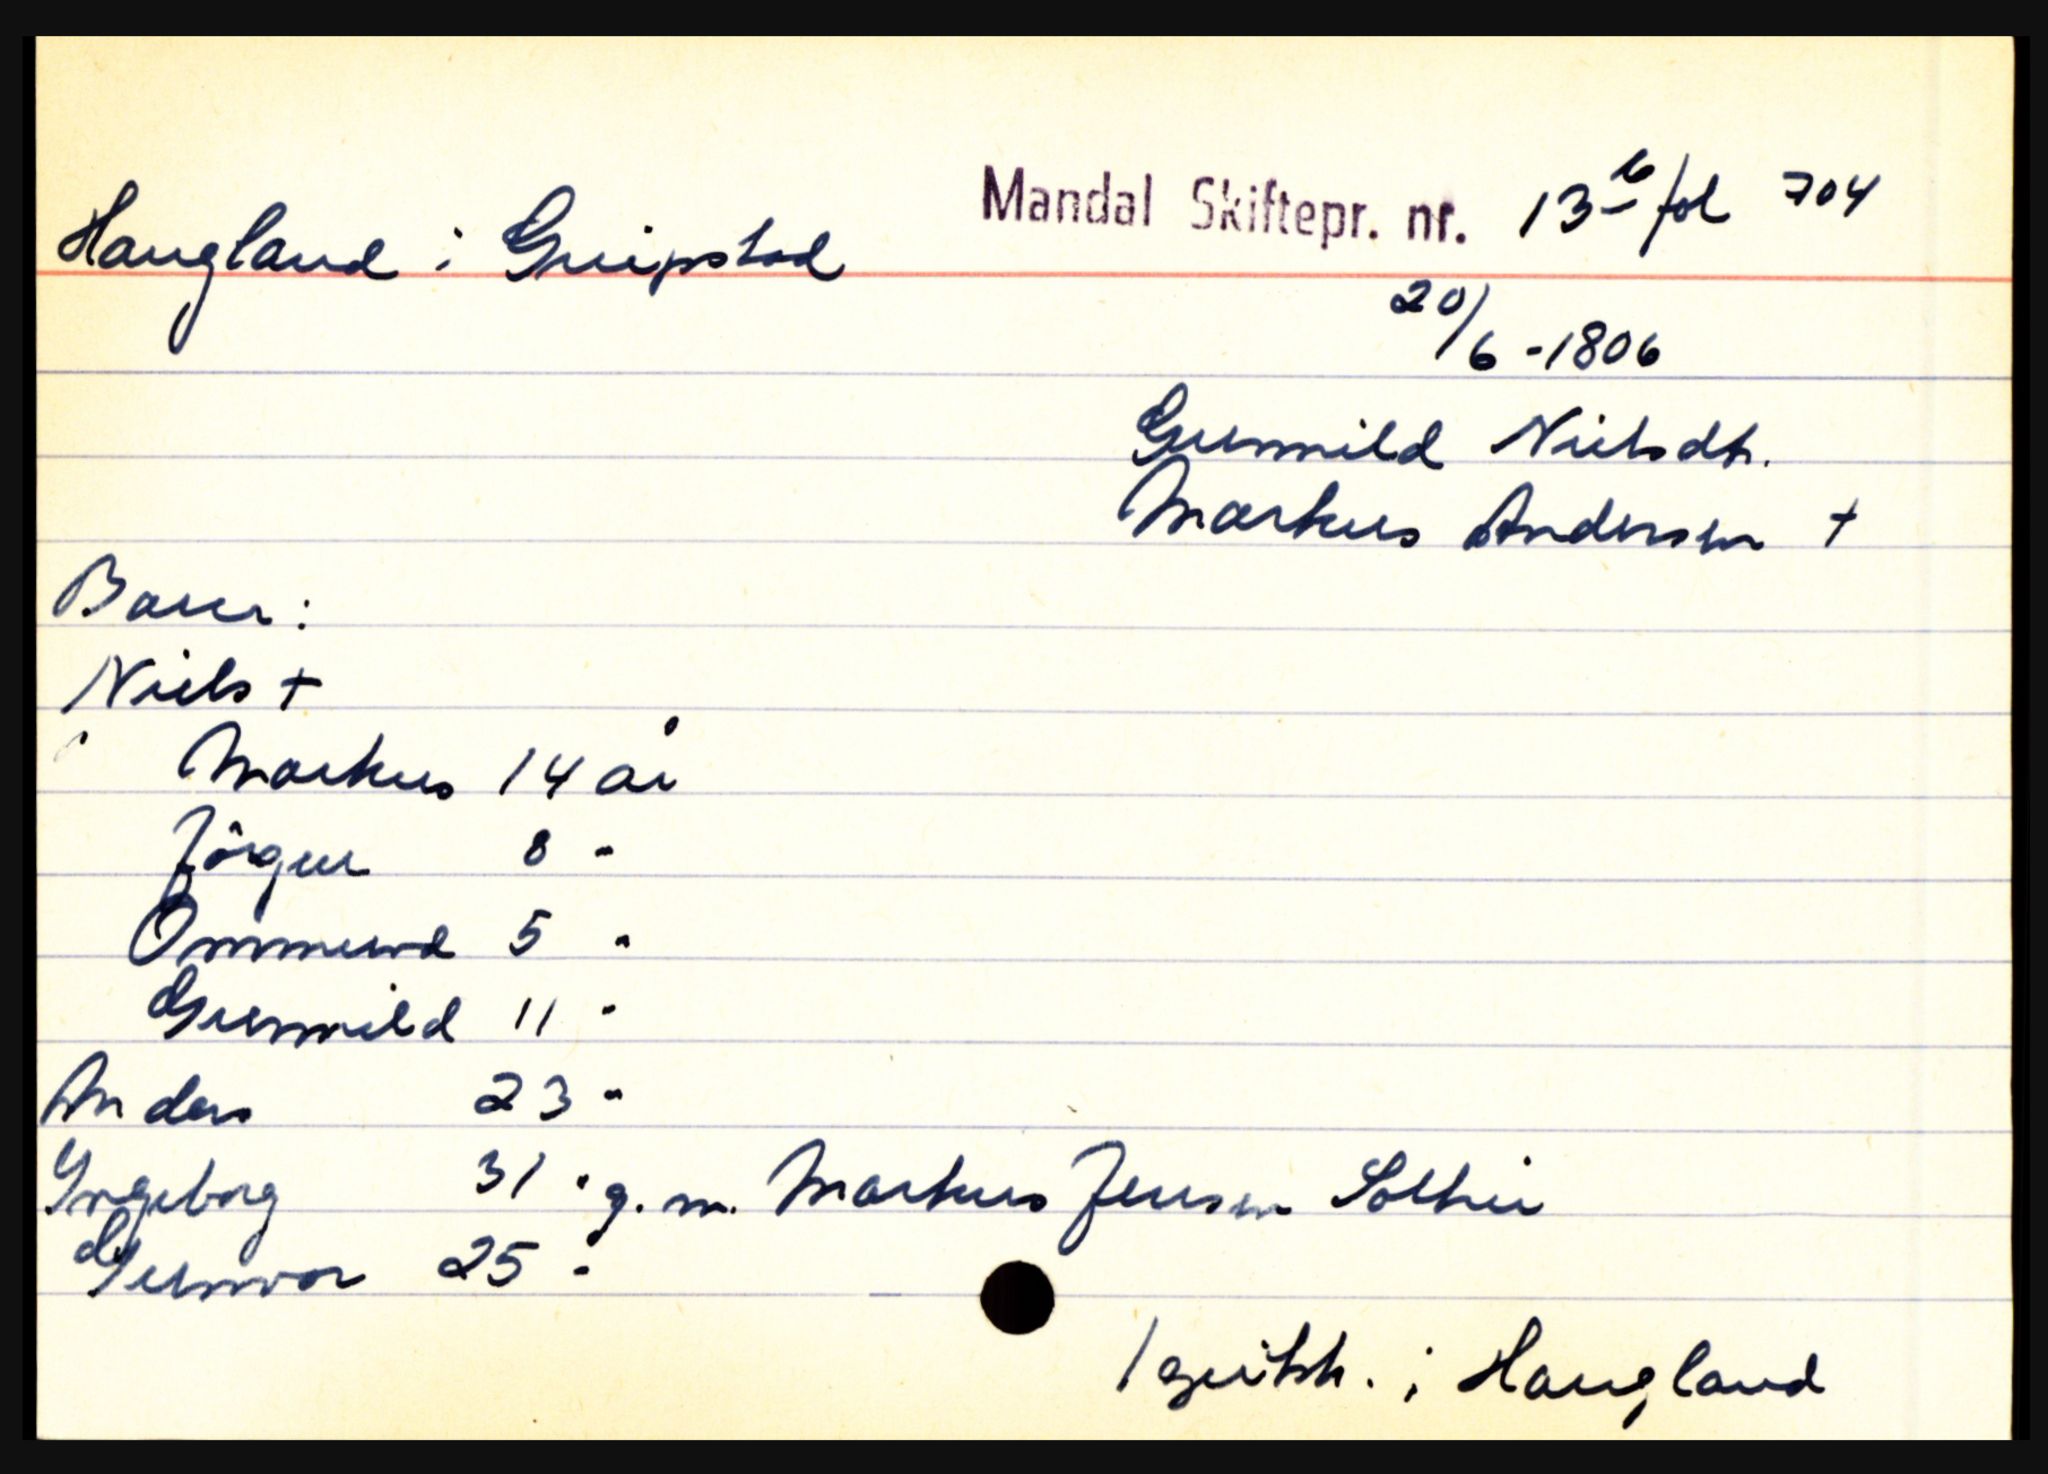 Haugland i Greipstad
Mandal Skiftepr. nr. 13 b fol 704
20/6 - 1806
Gunnild Nielsdtr.
Markus Andersen +
Barn:
Niels +
Markus 14 år
Jörgen 8 "
Ommund 5 "
Gunnild 11 "
Anders 23 "
Yngeborg 31 " g. m. Markus Jensen
Gunvor 25 "
i Haugland